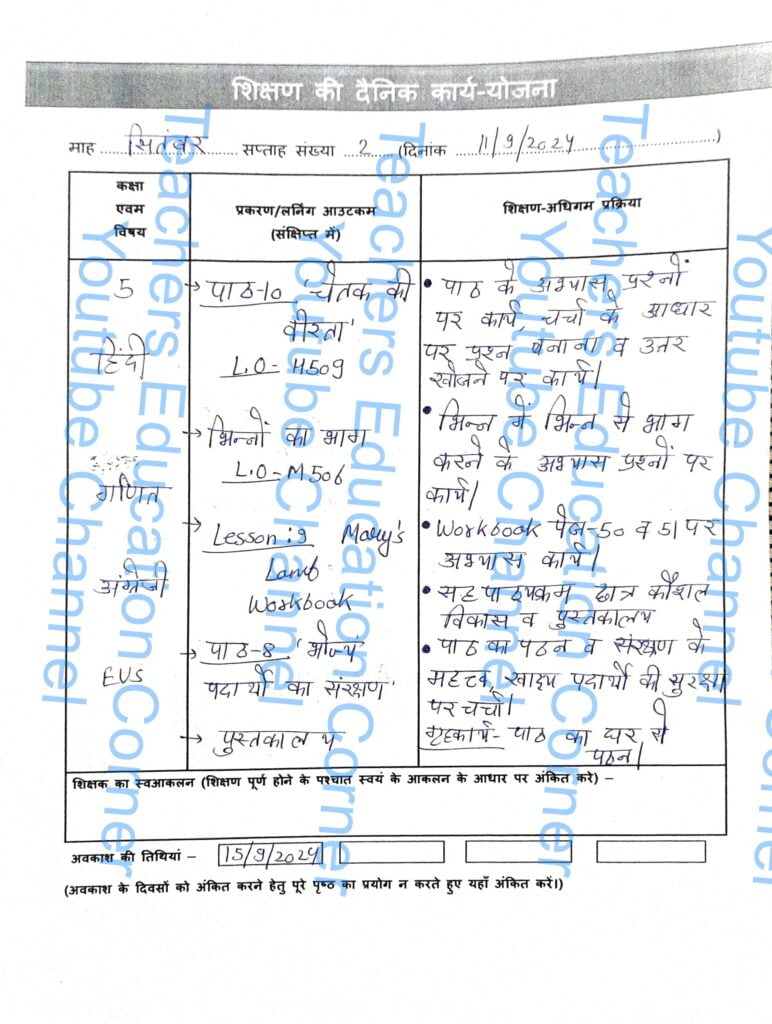 शिक्षण की दैनिक कार्य-योजना
माह सितंबर सप्ताह संख्या 2 (दिनांक 11/9/2024)
कक्षा
एवम
विषय
प्रकरण/लर्निंग आउटकम
(संक्षिप्त में)
शिक्षण-अधिगम प्रक्रिया
5
हिंदी
→ पाठ-10 'चेतक की
वीरता'
L.O- H509
• पाठ के अभ्यास प्रश्नों
पर कार्य, चर्चा के आधार
पर प्रश्न बनाना व उत्तर
खोजने पर कार्य।
गणित
→ भिन्नों का भाग
L.O- M506
• भिन्न में भिन्न से भाग
करने के अभ्यास प्रश्नों पर
कार्य।
अंग्रेजी
→ Lesson:9 Mary's
Lamb
Workbook
• Workbook पेज-50 व 51 पर
अभ्यास कार्य।
• सहपाठ्यक्रम छात्र कौशल
विकास व पुस्तकालय
EVS
→ पाठ-8 'भोज्य
पदार्थों का संरक्षण'
→ पुस्तकालय
• पाठ का पठन व संरक्षण के
महत्व, खाद्य पदार्थों की सुरक्षा
पर चर्चा।
गृहकार्य- पाठ का घर से
पठन।
शिक्षक का स्वआकलन (शिक्षण पूर्ण होने के पश्चात स्वयं के आकलन के आधार पर अंकित करे) –
अवकाश की तिथियां – 15/9/2024
(अवकाश के दिवसों को अंकित करने हेतु पूरे पृष्ठ का प्रयोग न करते हुए यहाँ अंकित करें।)
Teachers Education Corner
Youtube Channel
Teachers Education Corner
Youtube Channel
Teachers Education Corner
Youtube Channel
Youtube Channel